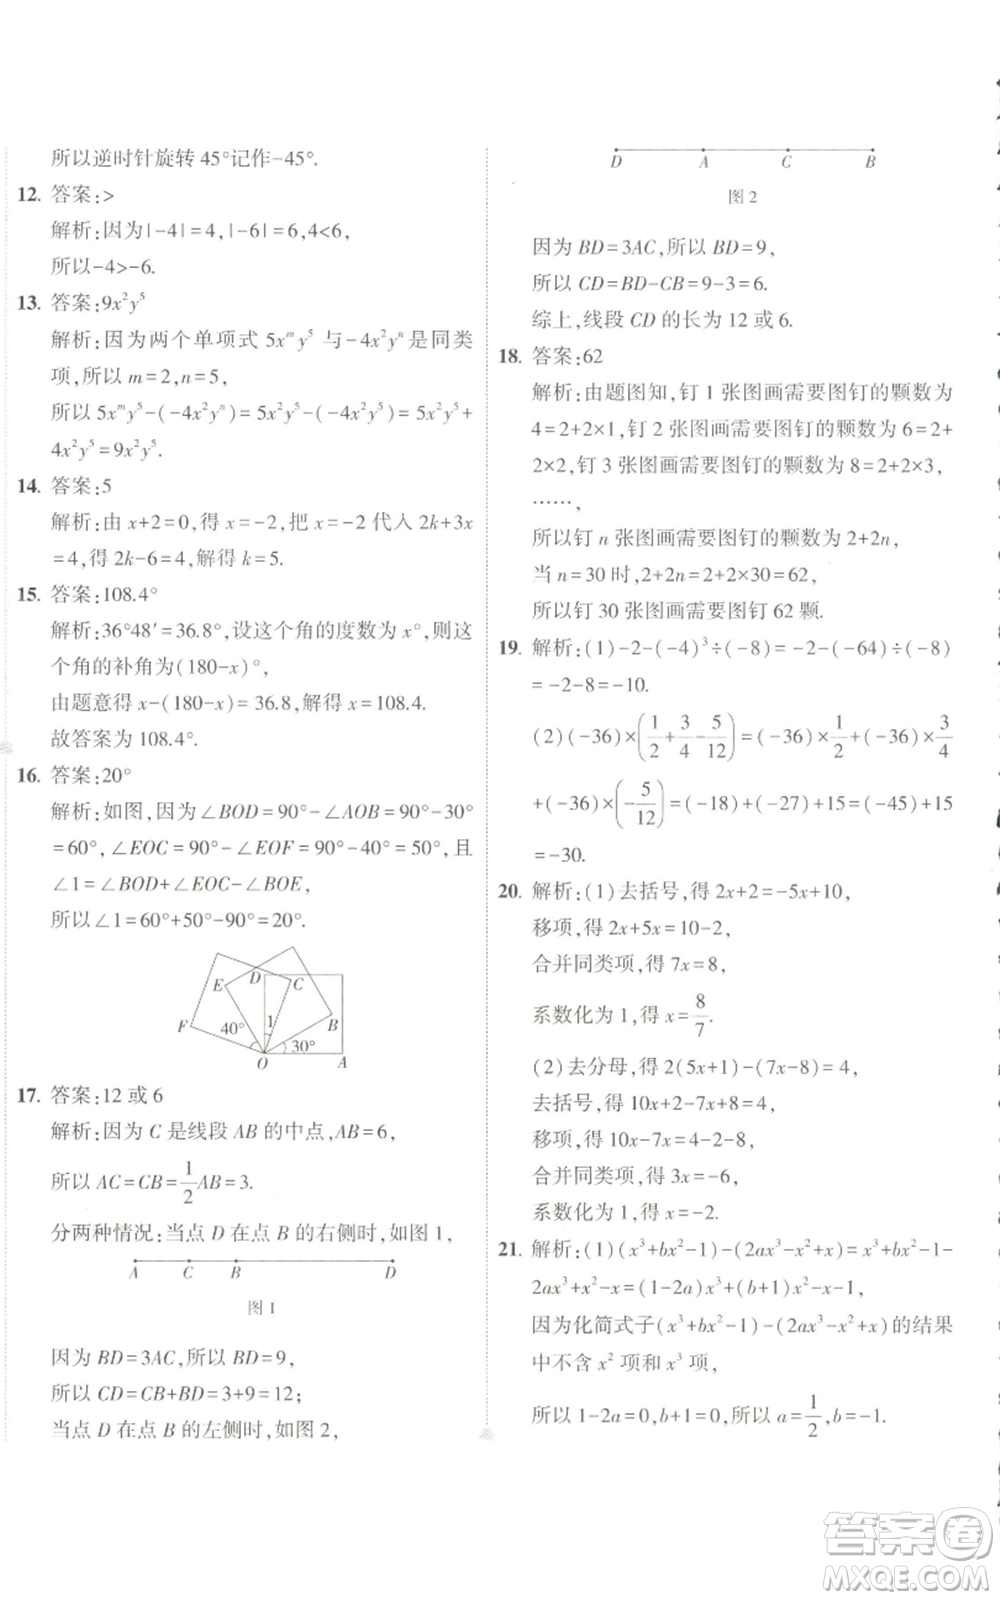 所以逆时针旋转 45°记作-45°.
12. 答案:>
解析:因为|-4|=4,|-6|=6,4<6,
所以-4>-6.
13. 答案:9x²y⁵
解析:因为两个单项式 5xᵐy⁵ 与-4x²yⁿ是同类
项,所以 m=2,n=5,
所以 5xᵐy⁵-(-4x²yⁿ)=5x²y⁵-(-4x²y⁵)=5x²y⁵+
4x²y⁵=9x²y⁵.
14. 答案:5
解析:由 x+2=0,得 x=-2,把 x=-2 代入 2k+3x
=4,得 2k-6=4,解得 k=5.
15. 答案:108.4°
解析:36°48′=36.8°,设这个角的度数为 x°,则这
个角的补角为(180-x)°,
由题意得 x-(180-x)=36.8,解得 x=108.4.
故答案为 108.4°.
16. 答案:20°
解析:如图,因为∠BOD=90°-∠AOB=90°-30°
=60°,∠EOC=90°-∠EOF=90°-40°=50°,且
∠1=∠BOD+∠EOC-∠BOE,
所以∠1=60°+50°-90°=20°.
D
E C
F 40° 1 B
30°
O A
17. 答案:12 或 6
解析:因为 C 是线段 AB 的中点,AB=6,
所以 AC=CB=1/2AB=3.
分两种情况:当点 D 在点 B 的右侧时,如图 1,
A C B D
图 1
因为 BD=3AC,所以 BD=9,
所以 CD=CB+BD=3+9=12;
当点 D 在点 B 的左侧时,如图 2,
D A C B
图 2
因为 BD=3AC,所以 BD=9,
所以 CD=BD-CB=9-3=6.
综上,线段 CD 的长为 12 或 6.
18. 答案:62
解析:由题图知,钉 1 张图画需要图钉的颗数为
4=2+2×1,钉 2 张图画需要图钉的颗数为 6=2+
2×2,钉 3 张图画需要图钉的颗数为 8=2+2×3,
……,
所以钉 n 张图画需要图钉的颗数为 2+2n,
当 n=30 时,2+2n=2+2×30=62,
所以钉 30 张图画需要图钉 62 颗.
19. 解析:(1)-2-(-4)³÷(-8)=-2-(-64)÷(-8)
=-2-8=-10.
(2)(-36)×(1/2+3/4-5/12)=(-36)×1/2+(-36)×3/4
+(-36)×(-5/12)=(-18)+(-27)+15=(-45)+15
=-30.
20. 解析:(1)去括号,得 2x+2=-5x+10,
移项,得 2x+5x=10-2,
合并同类项,得 7x=8,
系数化为 1,得 x=8/7.
(2)去分母,得 2(5x+1)-(7x-8)=4,
去括号,得 10x+2-7x+8=4,
移项,得 10x-7x=4-2-8,
合并同类项,得 3x=-6,
系数化为 1,得 x=-2.
21. 解析:(1)(x³+bx²-1)-(2ax³-x²+x)=x³+bx²-1-
2ax³+x²-x=(1-2a)x³+(b+1)x²-x-1,
因为化简式子(x³+bx²-1)-(2ax³-x²+x)的结果
中不含 x² 项和 x³ 项,
所以 1-2a=0,b+1=0,所以 a=1/2,b=-1.
答案卷
MXQE.COM